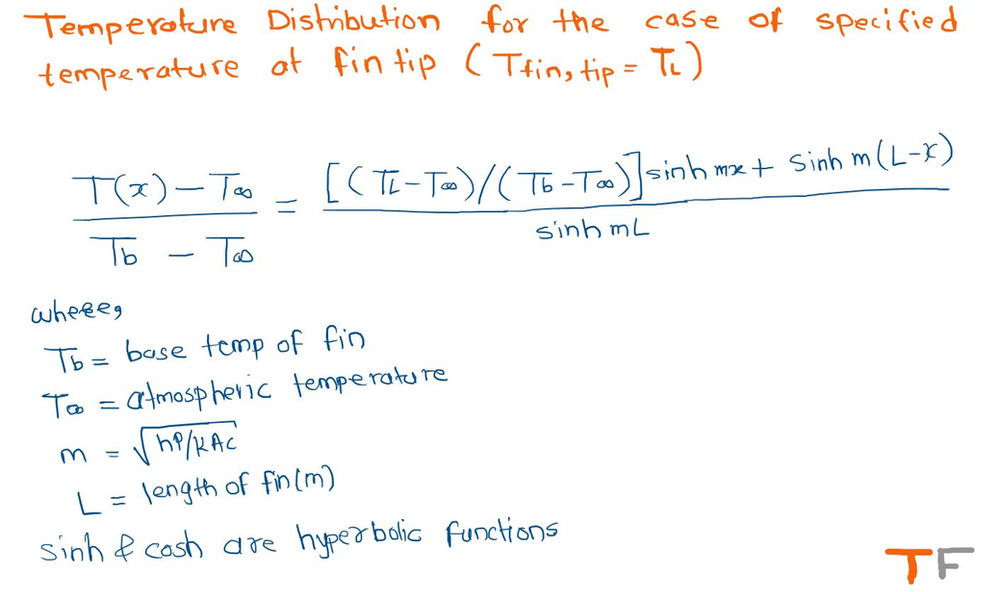 Temperature Distribution for the case of specified
temperature at fin tip (Tfin, tip = TL)
T(x) - T∞ / Tb - T∞ = [(TL-T∞)/(Tb-T∞)] sinh mx + Sinh m(L-x) / sinh mL
where,
Tb = base temp of fin
T∞ = atmospheric temperature
m = √hP/kAc
L = length of fin(m)
sinh & cosh are hyperbolic functions
TF